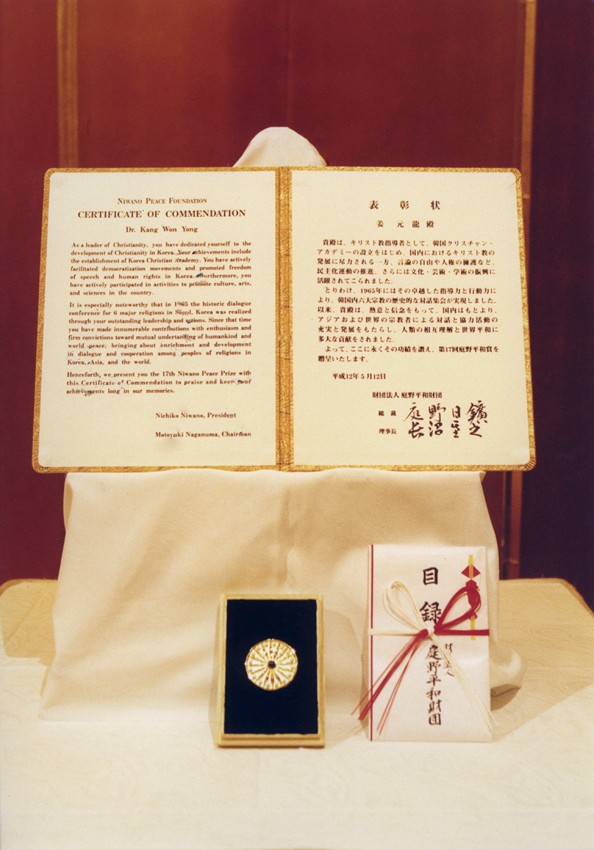 NIWANO PEACE FOUNDATION
CERTIFICATE OF COMMENDATION
Dr. Kang Won Yong
As a leader of Christianity, you have dedicated yourself to the
development of Christianity in Korea. Your achievements include
the establishment of Korea Christian Academy. You have actively
facilitated democratization movements and promoted freedom
of speech and human rights in Korea. Furthermore, you
have actively participated in activities to promote culture, arts,
and sciences in the country.
It is especially noteworthy that in 1965 the historic dialogue
conference for 6 major religions in Seoul, Korea was realized
through your outstanding leadership and actions. Since that time
you have made innumerable contributions with enthusiasm and
firm convictions toward mutual understanding of humankind and
world peace, bringing about enrichment and development
in dialogue and cooperation among peoples of religions in
Korea, Asia, and the world.
Henceforth, we present you the 17th Niwano Peace Prize with
this Certificate of Commendation to praise and keep your
achievements long in our memories.
Nichiko Niwano, President
Motoyuki Naganuma, Chairman
表彰状
姜元龍殿
貴殿は、キリスト教指導者として、韓国クリスチャン・
アカデミーの設立をはじめ、国内におけるキリスト教の
発展に尽力される一方、言論の自由や人権の擁護など、
民主化運動の推進、さらには文化・芸術・学術の振興に
活躍されてこられました。
とりわけ、1965年にはその卓越した指導力と行動力に
より、韓国内六大宗教の歴史的な対話集会が実現しました。
以来、貴殿は、熱意と信念をもって、国内はもとより、
アジアおよび世界の宗教者による対話と協力活動の
充実と発展をもたらし、人類の相互理解と世界平和に
多大な貢献をされました。
よって、ここに永くその功績を讃え、第17回庭野平和賞を
贈呈いたします。
平成12年5月12日
財団法人庭野平和財団
総裁 庭野日鑛
理事長 長沼基之
目録
庭野平和財団